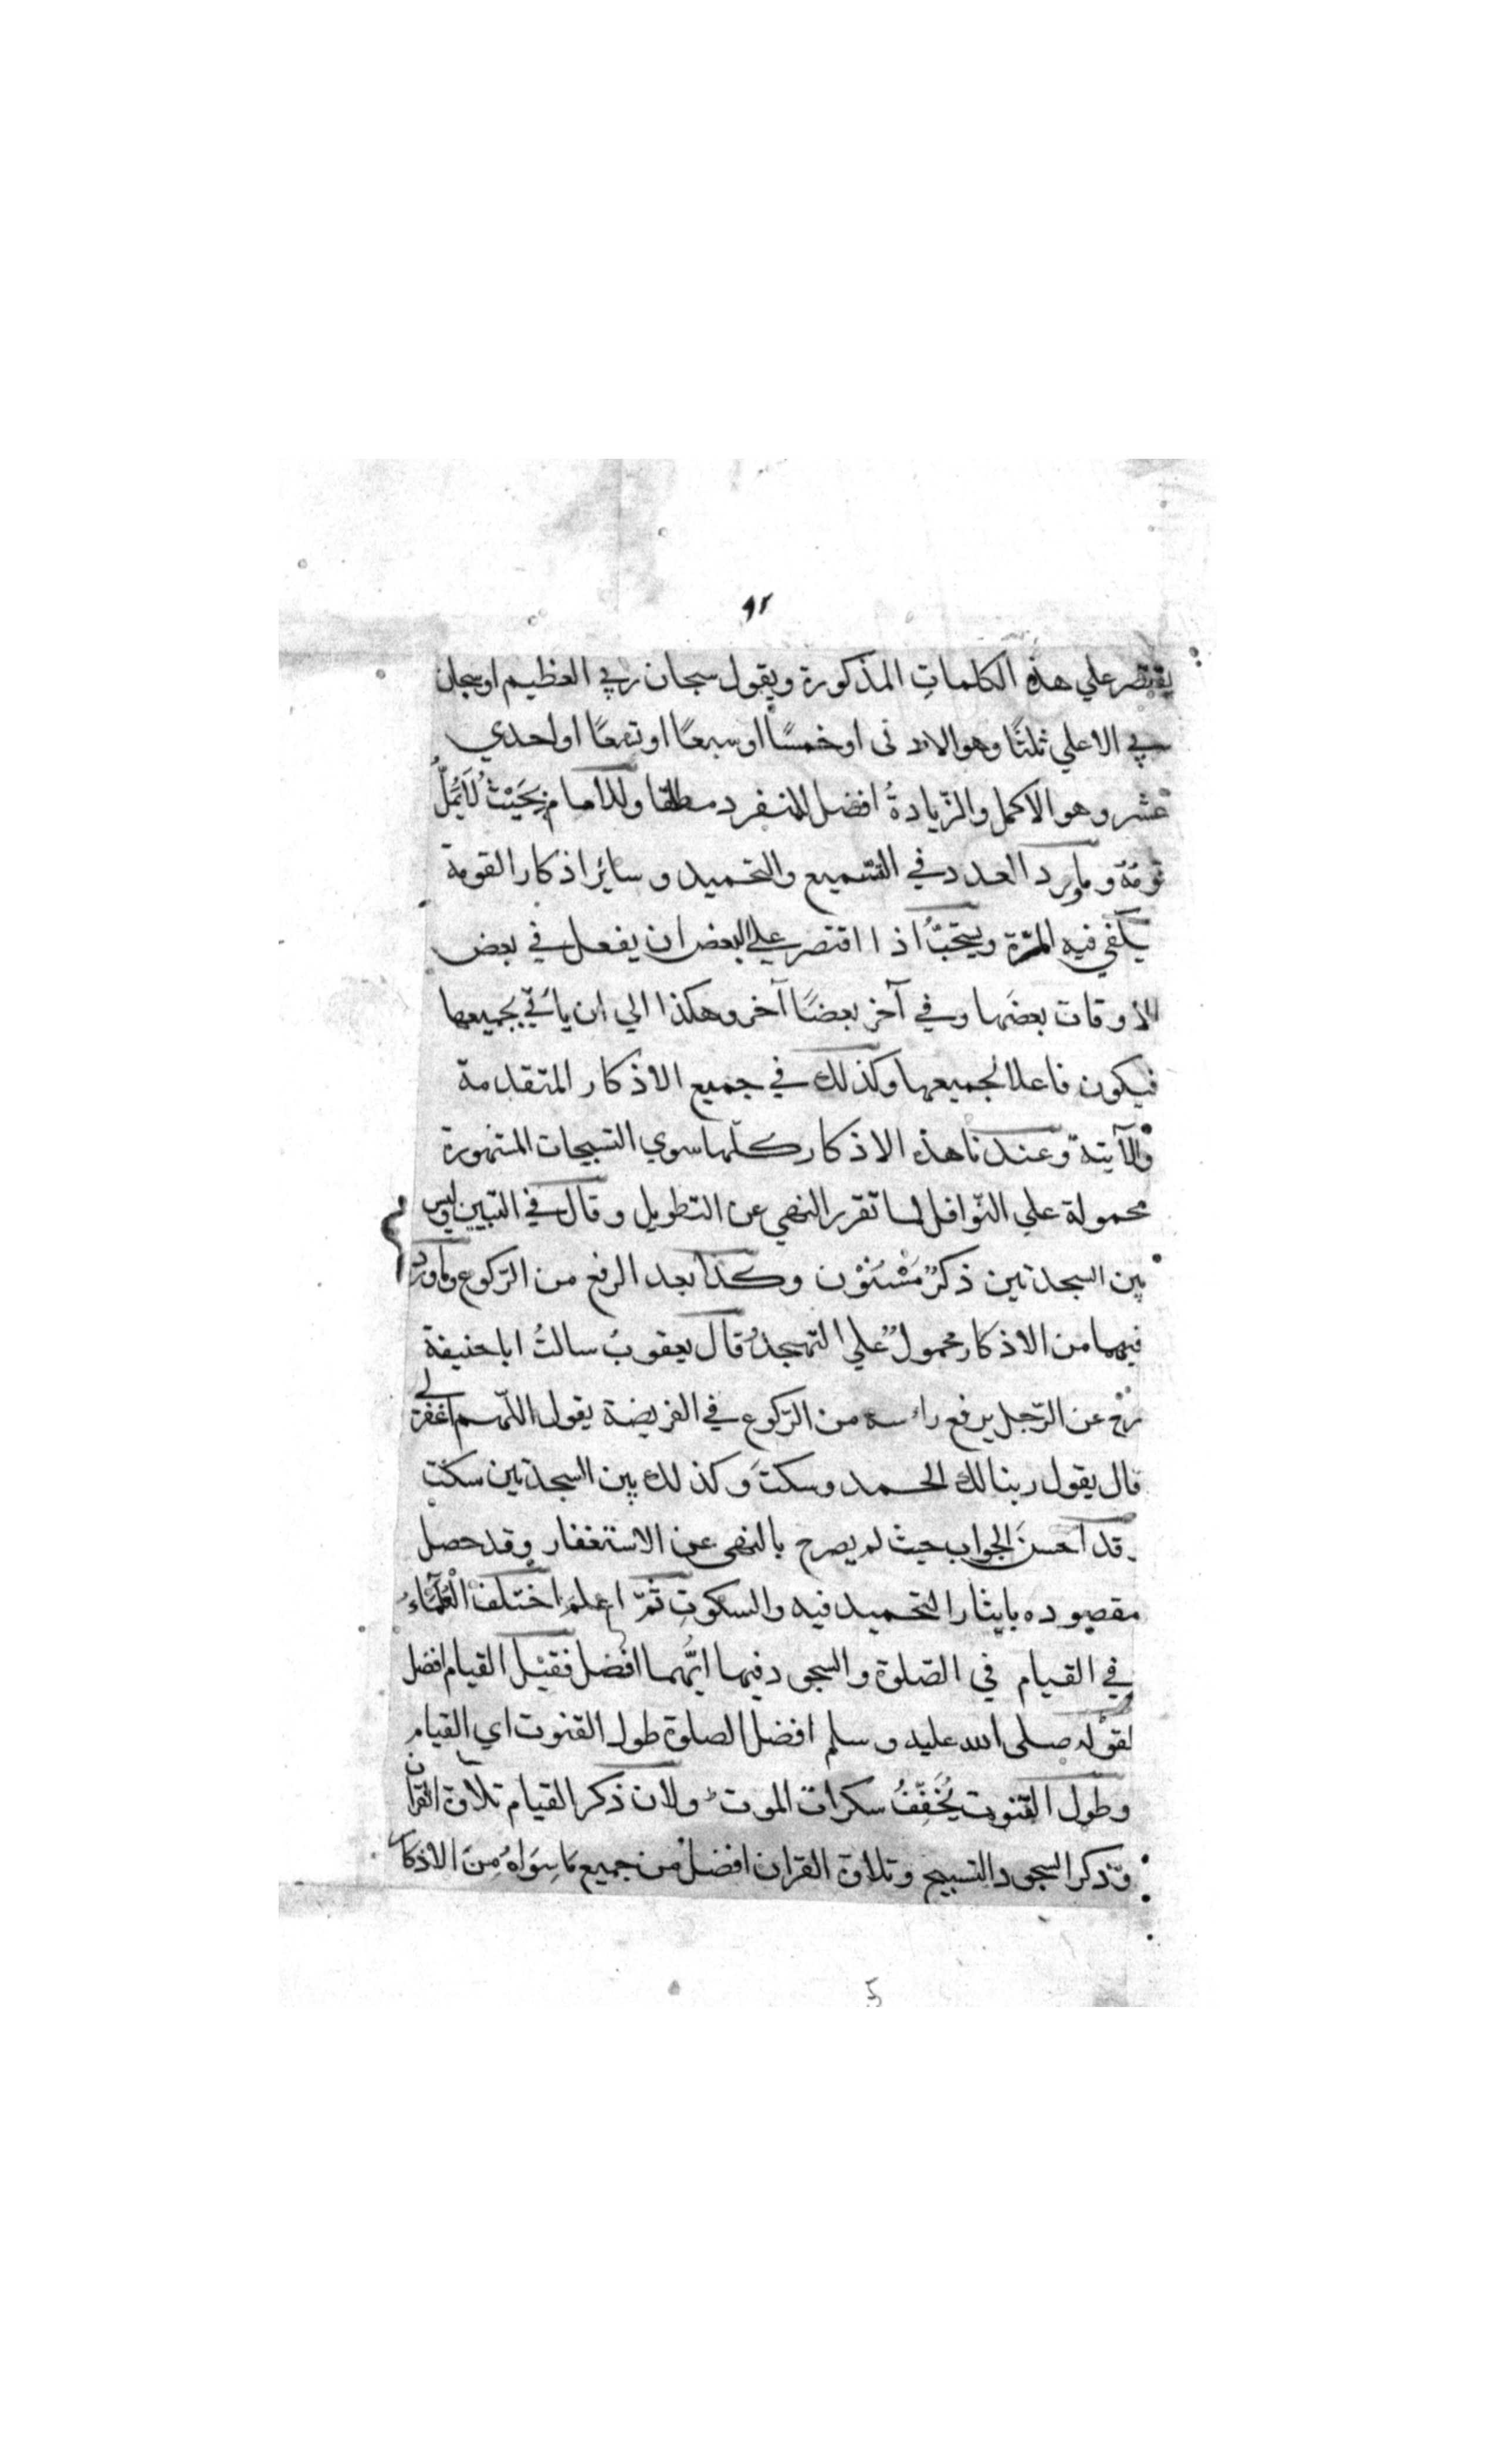 ٩٢
يقتصر علي هذه الكلماتِ المذكورة ويقول سبحان ربي العظيم او سبحان
ربي الاعلي ثلثًا وهو الادنى او خمسًا او سبعًا او تسعًا او احدي
عشر وهو الاكمل والزّيادةُ افضل للمنفرد مطلقا وللامام بِحَيْثُ لَا يَمَلُّ
قومُهُ وما ورد العدد في التسميع والتحميد و سايُر اذكار القومة
يكفي فيه المرّة ويستحبُّ اذا اقتصر علي البعض ان يفعل في بعض
الاوقات بعضَها وفي آخر بعضًا آخر وهكذا الي ان ياتي بجميعها
فيكون فاعلا لجميعها وكذلك في جميع الاذكار المتقدمة
والآتية وعندنا هذه الاذكار كلّها سوي التسبيحات المشهورة
محمولة علي النّوافل لما تقرر النهي عن التطويل وقال في التبيين وليس
بين السجدتين ذكرٌ مَسْنَوْن وكذا بعد الرفع من الرّكوع وما ورد
فيهما من الاذكار محمولٌ علي التهجد قال يعقوبُ سالتُ ابا حنيفة
رح عن الرّجل يرفع رأسه من الرّكوع في الفريضة يقول اللّهم اغفر لي
قال يقول ربنا لك الحمد وسكتَ وكذلك بين السجدتين سكت
قد احسنَ الجواب حيث لم يصرح بالنهى عن الاستغفار وقد حصل
مقصوده بايثار التحميد فيه والسكوتِ ثمّ اعلم اختلف الْعُلَمَآءُ
في القيام في الصّلوة والسجود فيها ايُّهما افضل فقيْل القيام افضل
لقوله صلى الله عليه وسلم افضل الصلوة طول القنوت اي القيام
وطول القنوت يُخَفِّفُ سكرات الموت ولان ذكر القيام تلاوة القران
وذكر السجود التسبيح وتلاوة القران افضل من جميع مَا سِوَاهُ مِنَ الاذكار